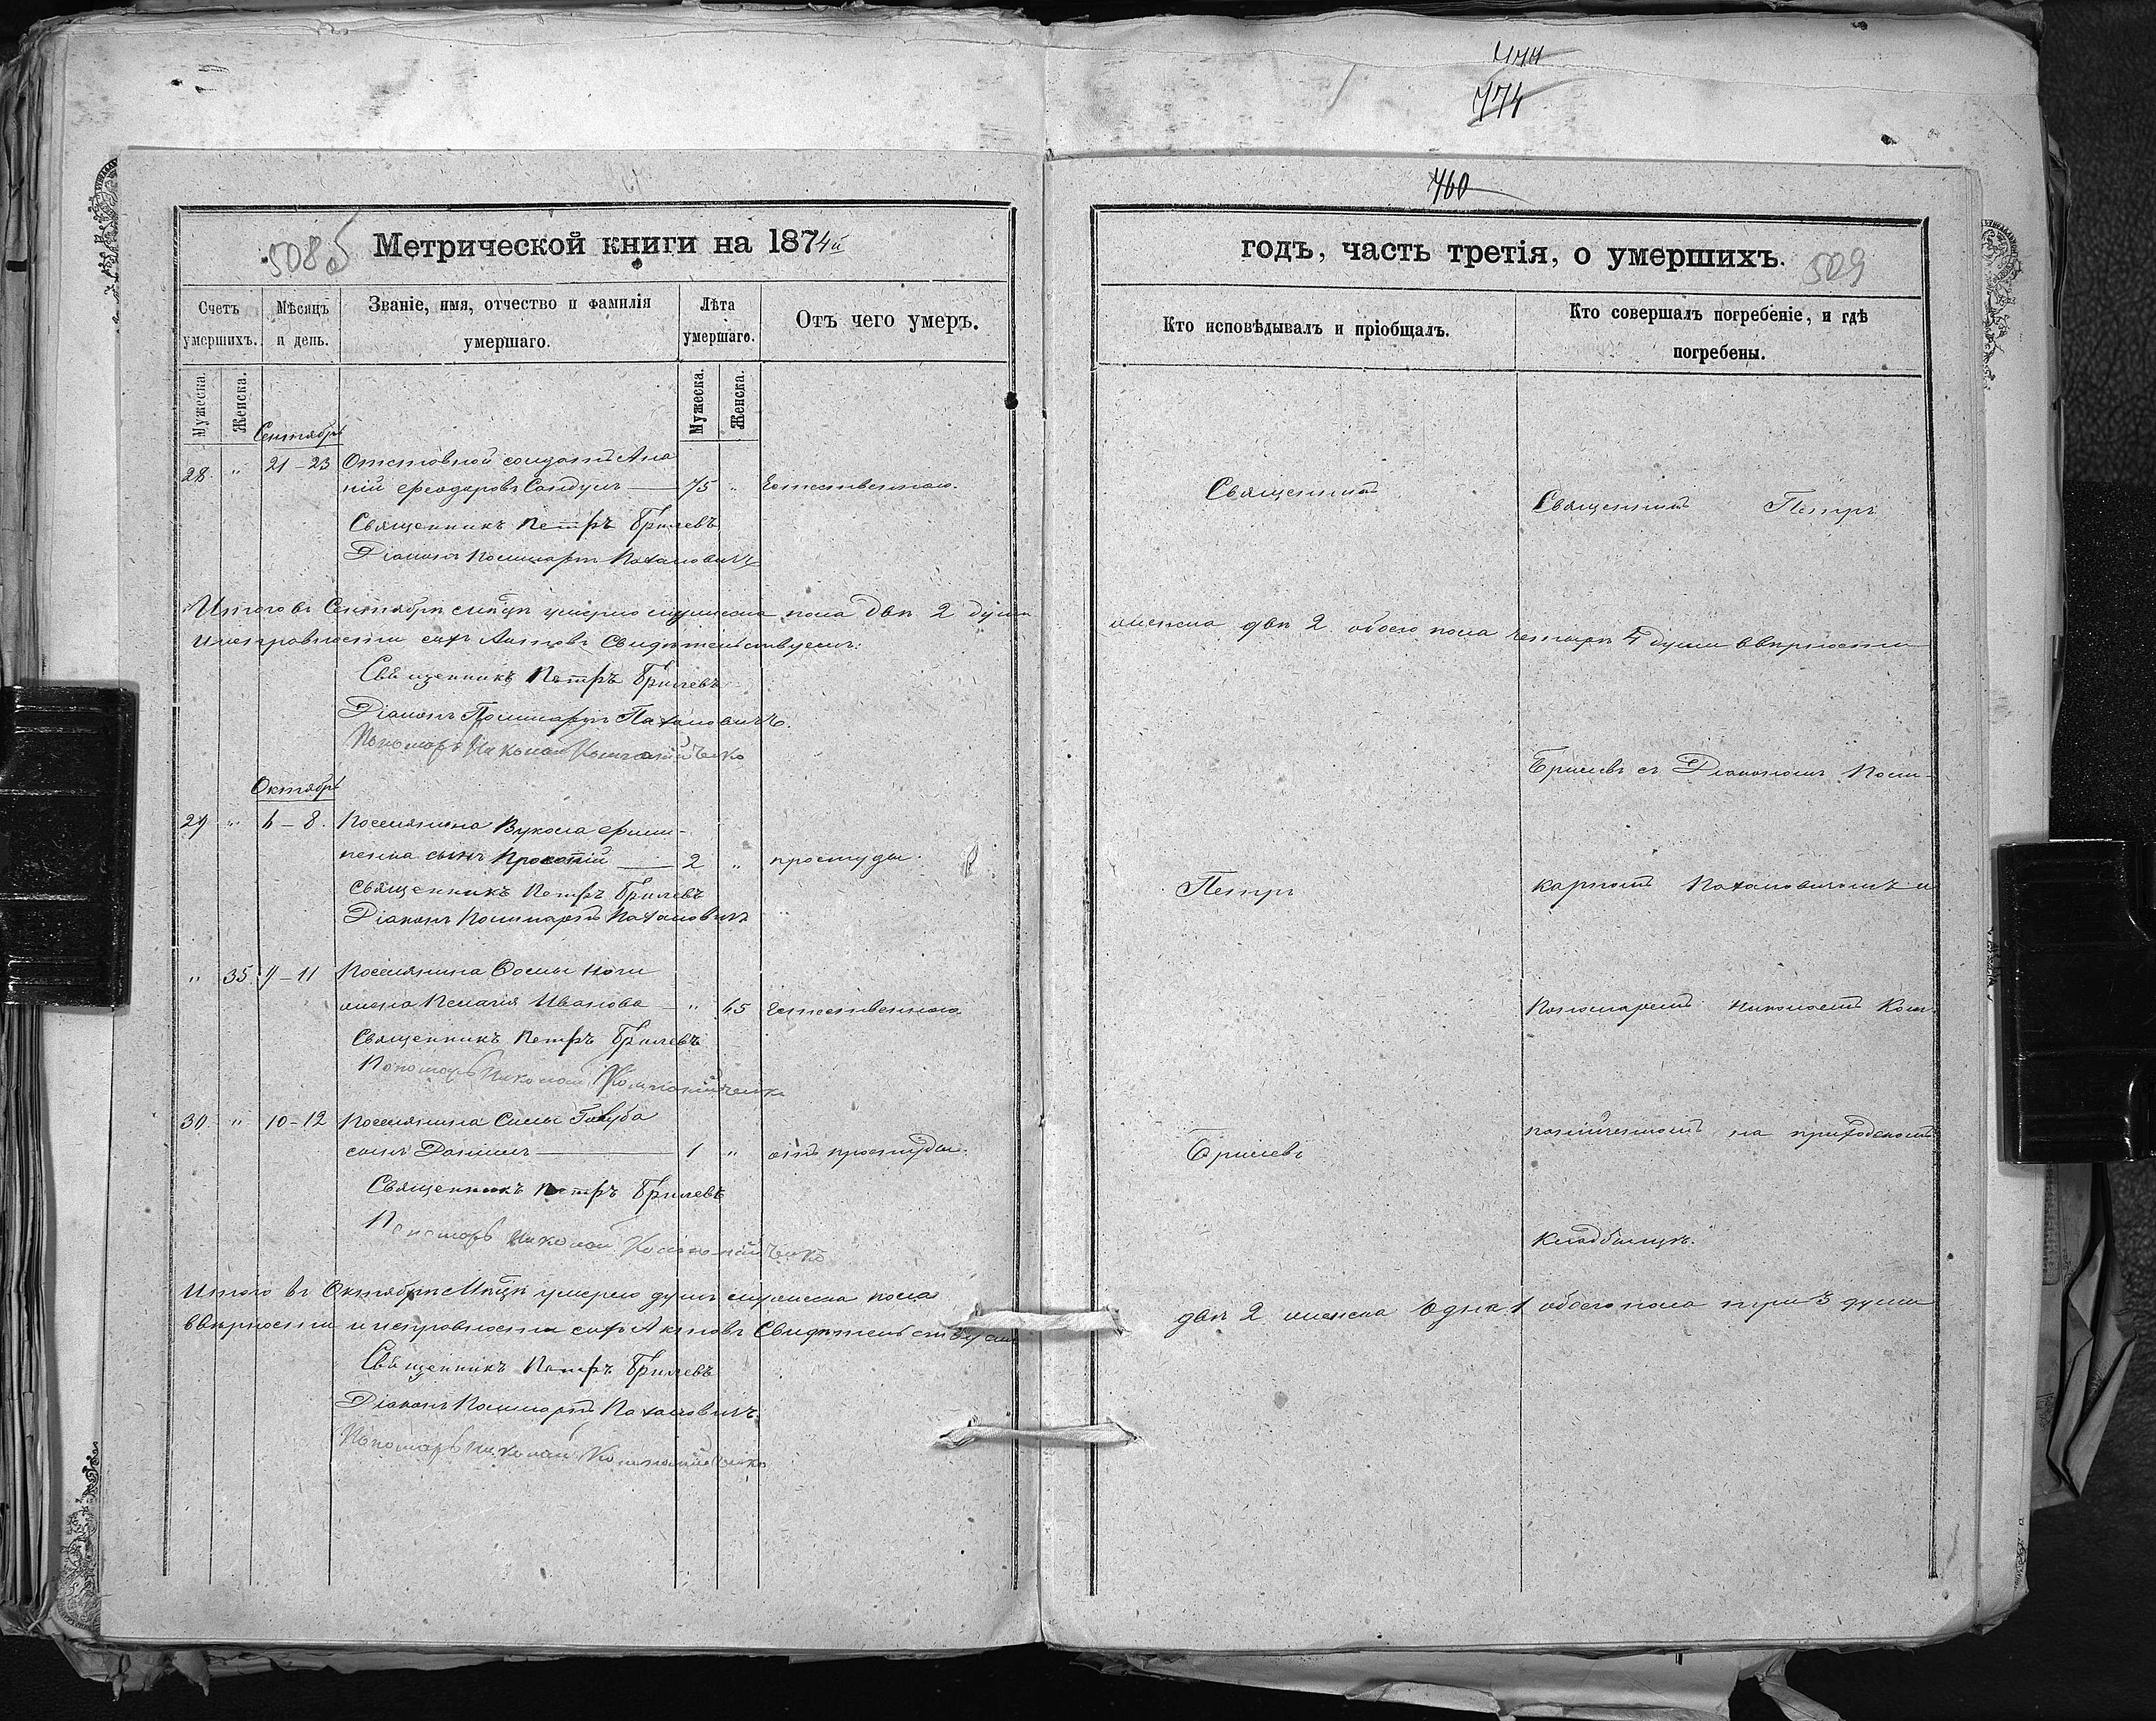 444
774
760
508б
Метрической книги на 1874й
Счетъ умершихъ.
Мѣсяцъ и день.
Званіе, имя, отчество и фамилія умершаго.
Лѣта умершаго.
Отъ чего умеръ.
Мужеска.
Женска.
Мужеска.
Женска.
Сентябрь
28. " 21-23 Отставной солдатъ Ана
ній Феодоровъ Сандулъ — 75 " Естественною.
Священникъ Петръ Брилевъ
Діаконъ Поликарпъ Патановичъ
Итого въ Сентябрѣ мѣсяцѣ умерло мужеска пола двѣ 2 души
и исправности сихъ Актовъ Свидѣтельствуемъ:
Священникъ Петръ Брилевъ
Діаконъ Поликарпъ Патановичъ.
Пономарь Николай
Октябрь
29 " 6-8. Поселянина Вукола
сынъ Прокопій — 2 " простуды.
Священникъ Петръ Брилевъ
Діаконъ Поликарпъ Патановичъ
" 35 9-11 Поселянина Фомы
жена Пелагія Иванова — " 65 Естественною
Священникъ Петръ Брилевъ
Пономарь Николай
30 " 10-12 Поселянина Силы Голуба
сынъ Даніилъ — 1 " отъ простуды.
Священникъ Петръ Брилевъ
Пономарь Николай
Итого въ Октябрѣ Мѣсяцѣ умерло душъ мужеска пола
въ вѣрности и исправности сихъ Актовъ Свидѣтельствуемъ
Священникъ Петръ Брилевъ
Діаконъ Поликарпъ Патановичъ.
Пономарь Николай
годъ, часть третія, о умершихъ.
509
Кто исповѣдывалъ и пріобщалъ.
Кто совершалъ погребеніе, и гдѣ погребены.
Священникъ
Священникъ Петръ
женска двѣ 2 обоего пола четыре 4 души въ вѣрности
Брилевъ съ Діакономъ Поли-
Петръ
карпомъ Патановичемъ и
Пономаремъ Николаемъ Ком-
на приходскомъ
Брилевъ
кладбищѣ.
двѣ 2 женска одна 1 обоего пола три 3 души